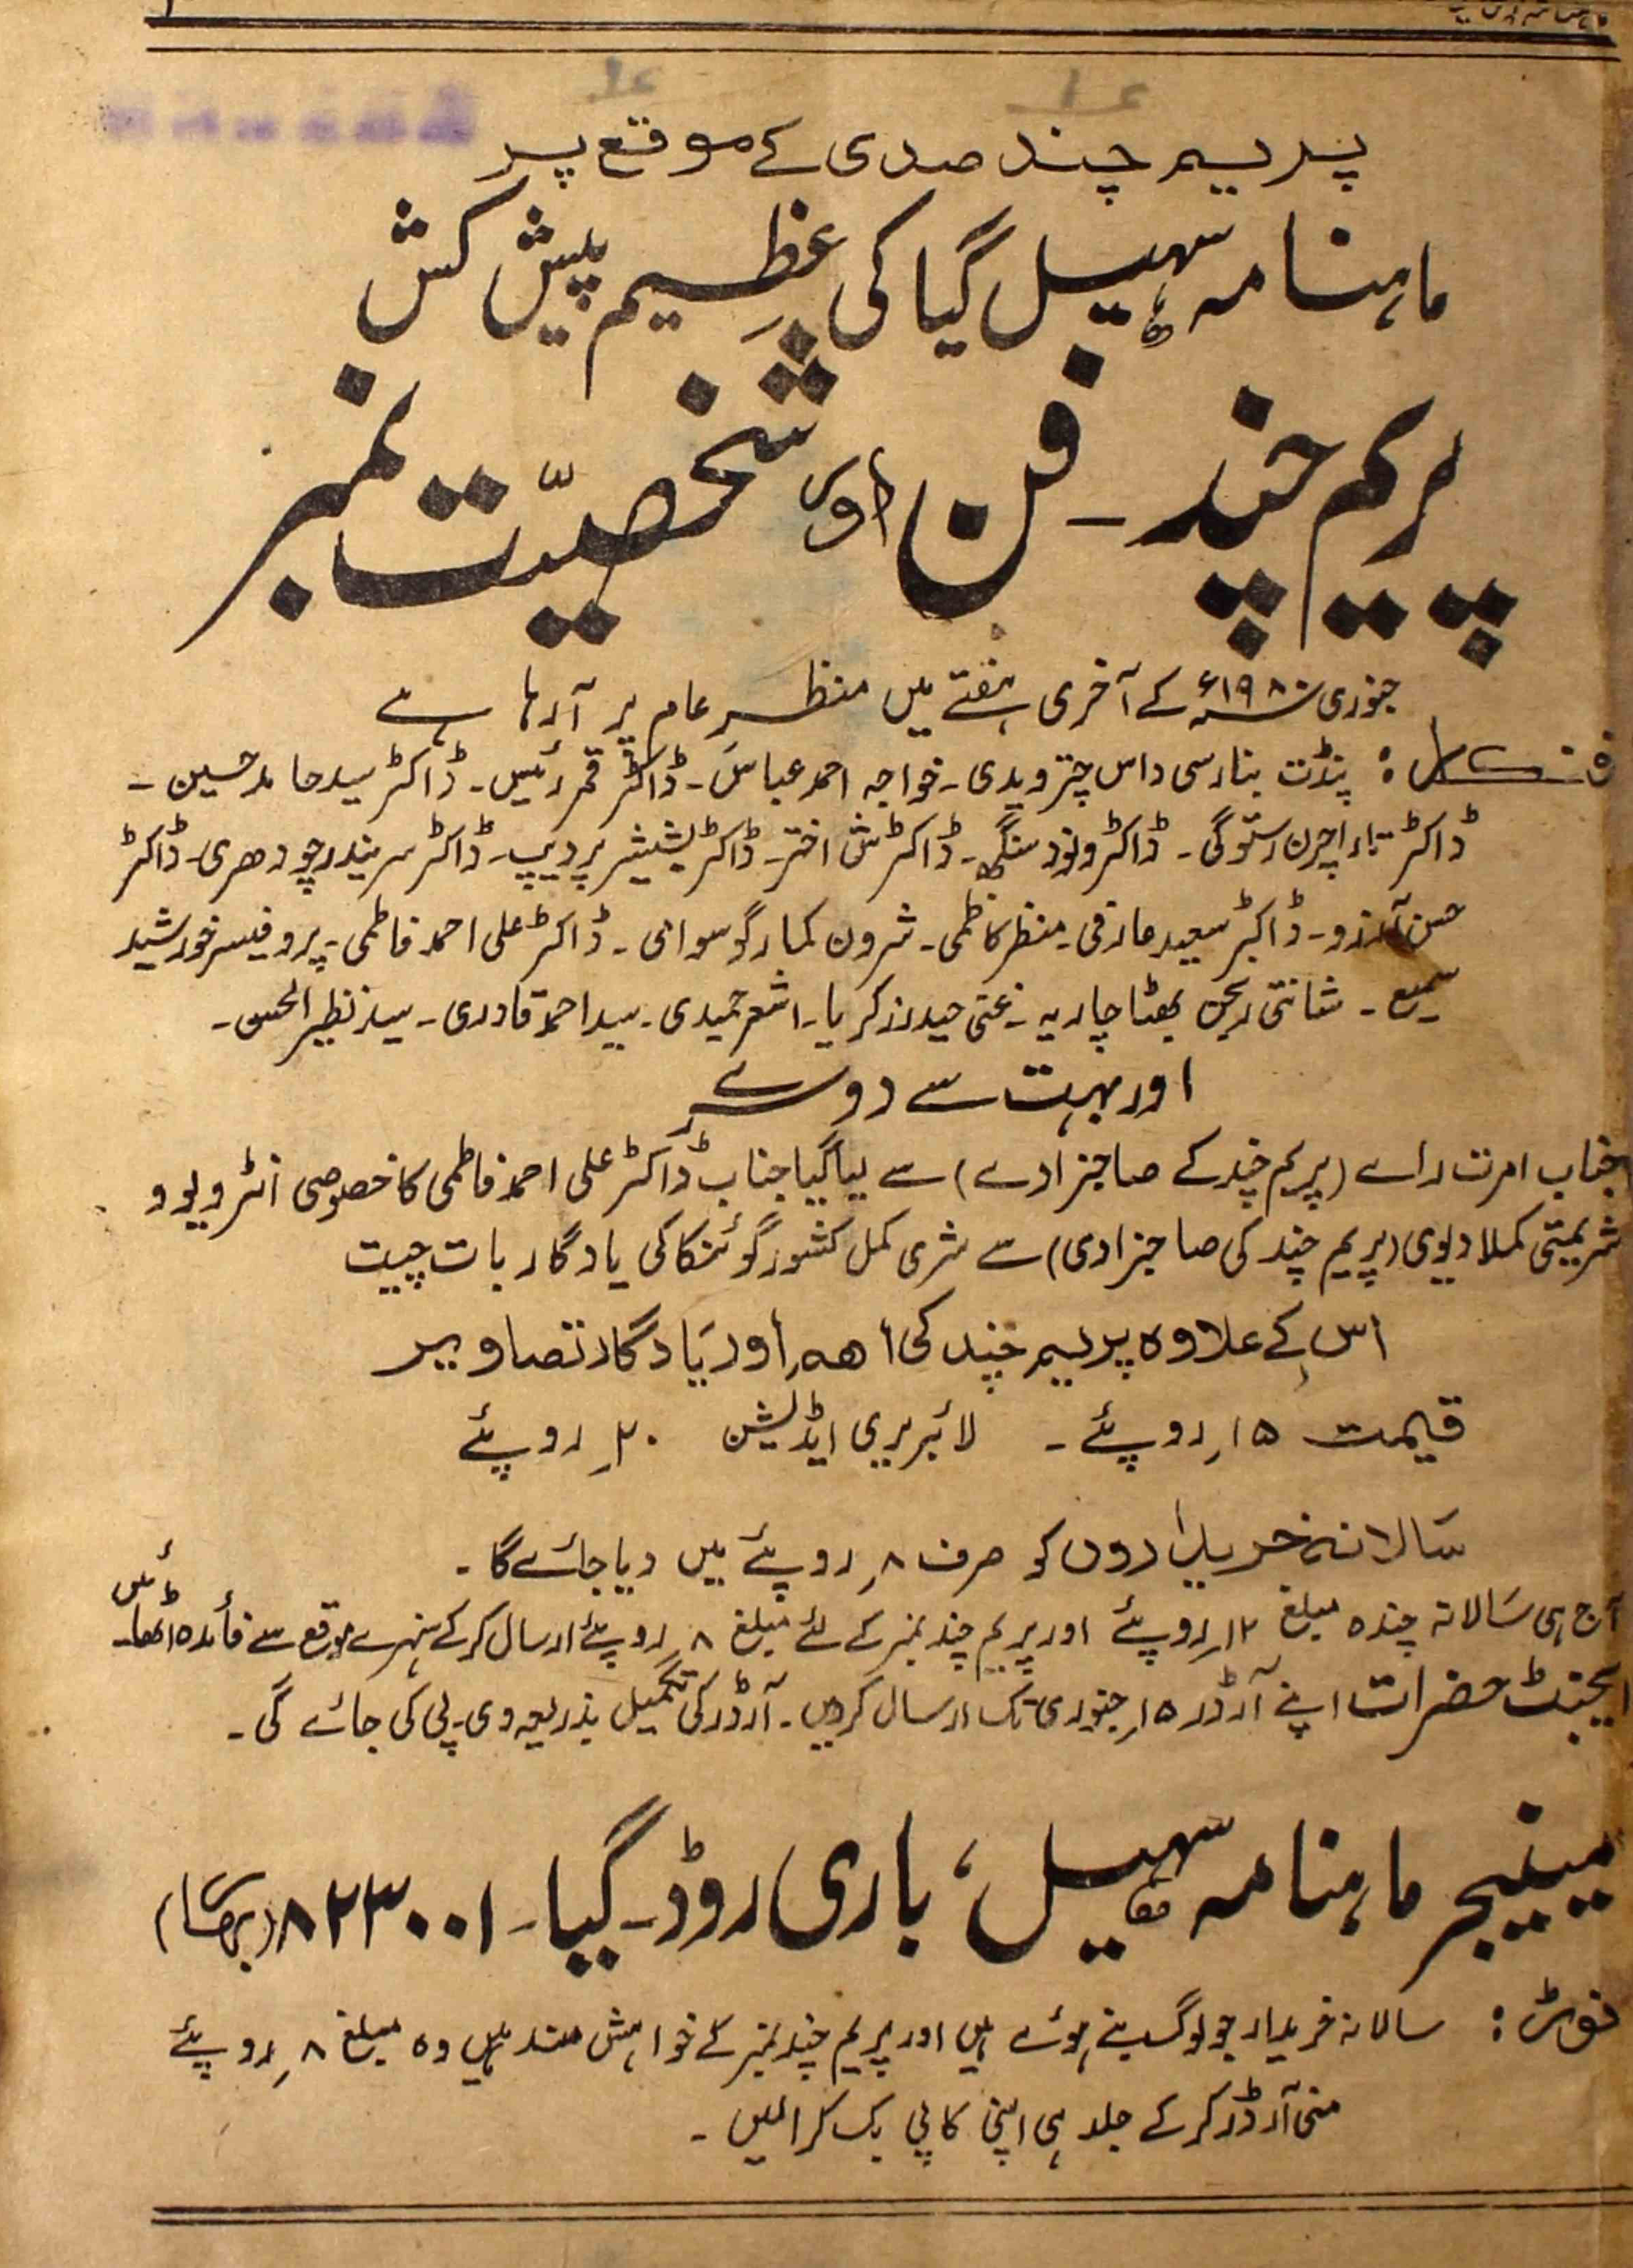 پریم چند صدی کے موقع پر
ماہنامہ سہیل گیا کی عظیم پیش کش
پریم چند ۔ فن اور شخصیّت نمبر
جنوری ۱۹۸۰ء کے آخری ہفتے میں منظر عام پر آرہا ہے
پنڈت بنارسی داس چترویدی ۔ خواجہ احمد عباس ۔ ڈاکٹر قمر رئیس ۔ ڈاکٹر سید حامد حسین ۔
ڈاکٹر تارا چرن رستوگی ۔ ڈاکٹر ونود سنگھ ۔ ڈاکٹر ش اختر ۔ ڈاکٹر ششیشر پردیپ ۔ ڈاکٹر سریندر چودھری ۔ ڈاکٹر
حسن آرزو ۔ ڈاکٹر سعید عارفی ۔ منظر کاظمی ۔ شرون کمار گوسوامی ۔ ڈاکٹر علی احمد فاطمی ۔ پروفیسر خورشید
سمیع ۔ شانتی رنجن بھٹاچاریہ ۔ غنی حیدر زکریا ۔ اشعر حمیدی ۔ سید احمد قادری ۔ سید نظیر الحسن ۔
اور بہت سے دوسرے
جناب امرت رائے (پریم چند کے صاحبزادے) سے لیا گیا جناب ڈاکٹر علی احمد فاطمی کا خصوصی انٹرویو و
شریمتی کملا دیوی (پریم چند کی صاحبزادی) سے شری کمل کشور گوئنکا کی یادگار بات چیت
اس کے علاوہ پریم چند کی اہم اور یادگار تصاویر
قیمت ۱۵ روپئے ۔ لائبریری ایڈیشن ۲۰ روپئے
سالانہ خریداروں کو صرف ۸ روپئے میں دیا جائے گا ۔
آج ہی سالانہ چندہ مبلغ ۱۲ روپئے اور پریم چند نمبر کے لئے مبلغ ۸ روپئے ارسال کرکے سنہرے موقع سے فائدہ اٹھائیں
ایجنٹ حضرات اپنے آرڈر ۱۵ جنوری تک ارسال کردیں ۔ آرڈر کی تکمیل بذریعہ وی ۔ پی کی جائے گی ۔
مینیجر ماہنامہ سہیل، باری روڈ ۔ گیا ۔ ۸۲۳۰۰۱ (بہار)
نوٹ : سالانہ خریدار جو لوگ بنے ہوئے ہیں اور پریم چند نمبر کے خواہش مند ہیں وہ مبلغ ۸ روپئے
منی آرڈر کرکے جلد ہی اپنی کاپی بک کرالیں ۔